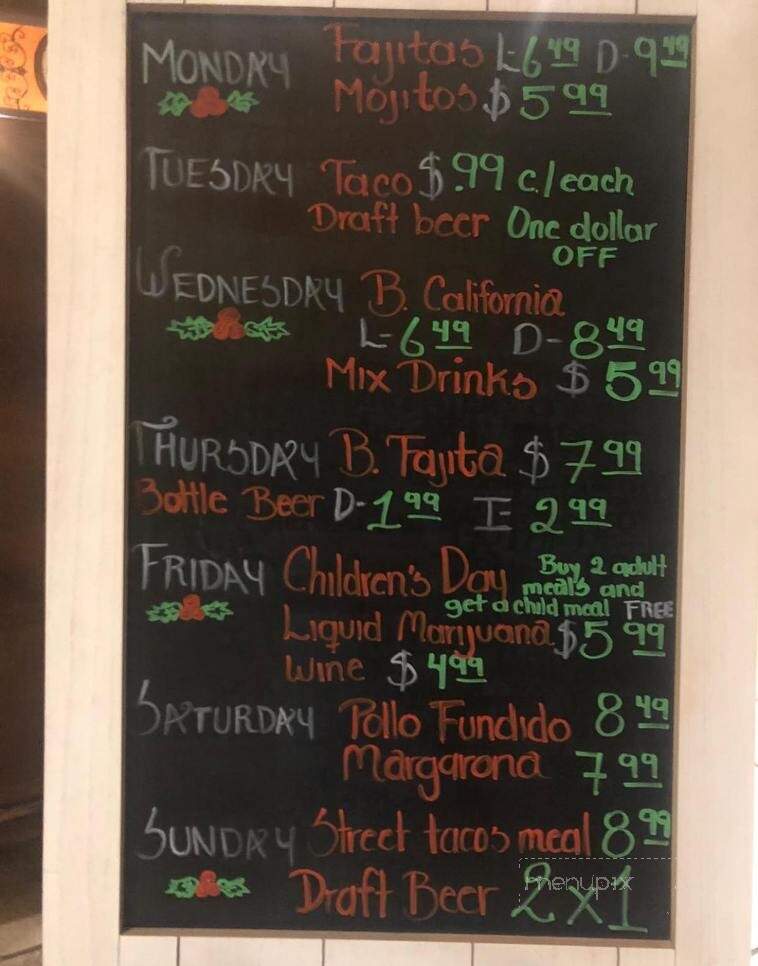 MONDAY Fajitas L-6.49 D-9.49
Mojitos $5.99
TUESDAY Taco $.99 c/each
Draft beer One dollar
OFF
WEDNESDAY B. California
L-6.49 D-8.49
Mix Drinks $5.99
THURSDAY B. Fajita $7.99
Bottle Beer D-1.99 I-2.99
FRIDAY Children's Day Buy 2 adult
meals and
get a child meal FREE
Liquid Marijuana $5.99
Wine $4.99
SATURDAY Pollo Fundido 8.49
Margarona 7.99
SUNDAY Street tacos meal 8.99
Draft Beer 2x1
menupix